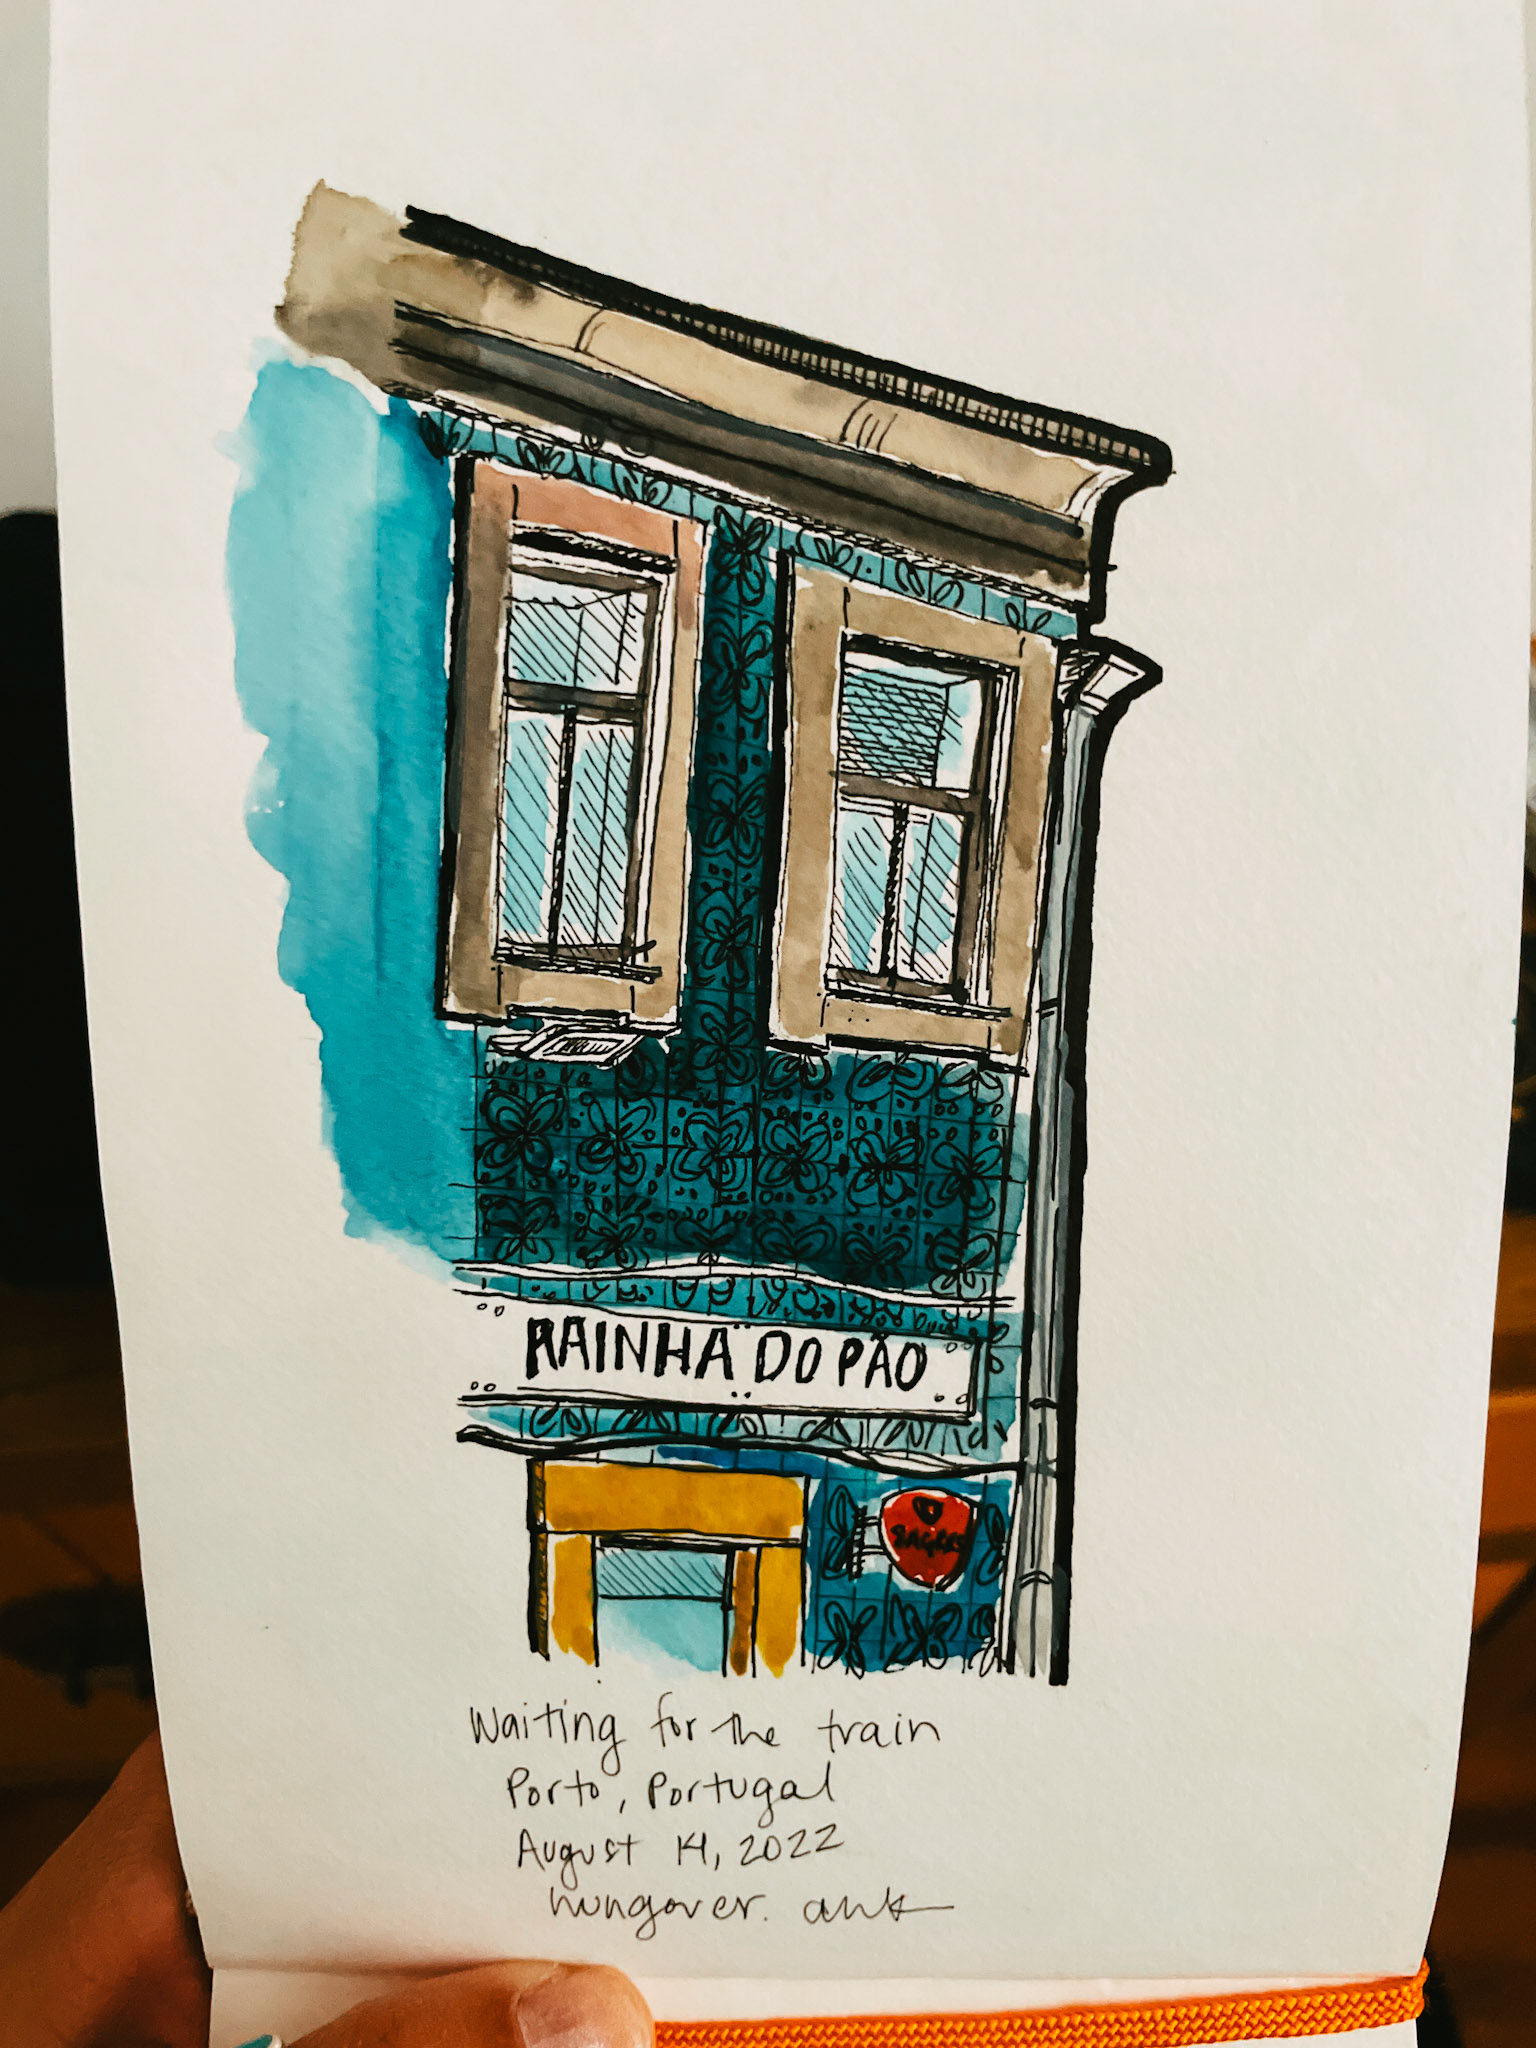 RAINHA DO PÃO
Waiting for the train
Porto, Portugal
August 14, 2022
hungover.